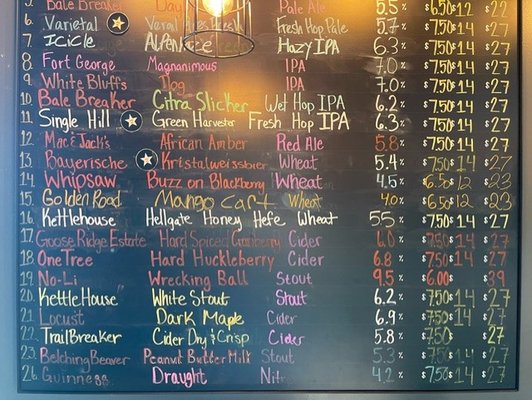 5. Bale Breaker Day Pale Ale 5.5% $6.50 $12 $22
6. Varietal Fresh Hop Pale 5.7% $7.50 $14 $27
7. Icicle Alpenfresh Hazy IPA 6.3% $7.50 $14 $27
8. Fort George Magnanimous IPA 7.0% $7.50 $14 $27
9. White Bluffs Dog IPA 7.0% $7.50 $14 $27
10. Bale Breaker Citra Slicher Wet Hop IPA 6.2% $7.50 $14 $27
11. Single Hill Green Harvester Fresh Hop IPA 6.3% $7.50 $14 $27
12. Mac & Jack's African Amber Red Ale 5.8% $7.50 $14 $27
13. Bayerische Kristalweissbier Wheat 5.4% $7.50 $14 $27
14. Whipsaw Buzz on Blackberry Wheat 4.5% $6.50 $12 $23
15. Golden Road Mango Cart Wheat 4.0% $6.50 $12 $23
16. Kettlehouse Hellgate Honey Hefe Wheat 55% $7.50 $14 $27
17. Goose Ridge Estate Hard Spiced Cranberry Cider 6.0% $7.50 $14 $27
18. One Tree Hard Huckleberry Cider 6.8% $7.50 $14 $27
19. No-Li Wrecking Ball Stout 9.5% $6.00 $ 39
20. KettleHouse White Stout Stout 6.2% $7.50 $14 $27
21. Locust Dark Maple Cider 6.9% $7.50 $14 $27
22. TrailBreaker Cider Dry & Crisp Cider 5.8% $7.50 $27
23. Belching Beaver Peanut Butter Milk Stout 5.3% $7.50 $14 $27
26. Guinness Draught Nitro 4.2% $7.50 $14 $27